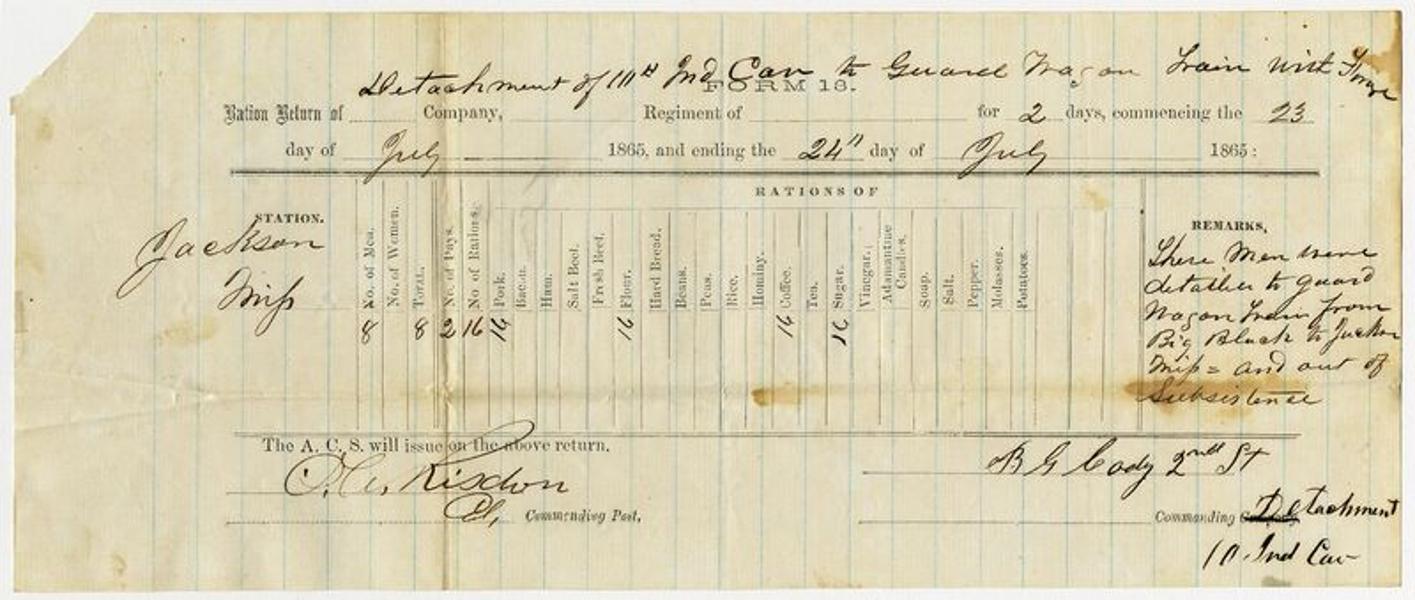 Detachment of 10th Ind Cav to Guard Wagon Train with Forage
FORM 13.
Ration Return of Company, Regiment of for 2 days, commencing the 23
day of July 1865, and ending the 24" day of July 1865:
RATIONS OF
STATION.
No. of Men.
No. of Women.
TOTAL.
No. of Days.
No of Rations.
Pork.
Bacon.
Ham.
Salt Beef.
Fresh Beef.
Flour.
Hard Bread.
Beans.
Peas.
Rice.
Hominy.
Coffee.
Tea.
Sugar.
Vinegar.
Adamantine Candles.
Soap.
Salt.
Pepper.
Molasses.
Potatoes.
REMARKS,
Jackson
Miss
8 8 2 16 16 16 16 16
These Men were
detailed to guard
Wagon Train from
Big Black to Jackson
Miss = and out of
Subsistence
The A. C. S. will issue on the above return.
Risdon
Commending Post.
B G Cody 2nd St
Commanding Detachment
10 Ind Cav